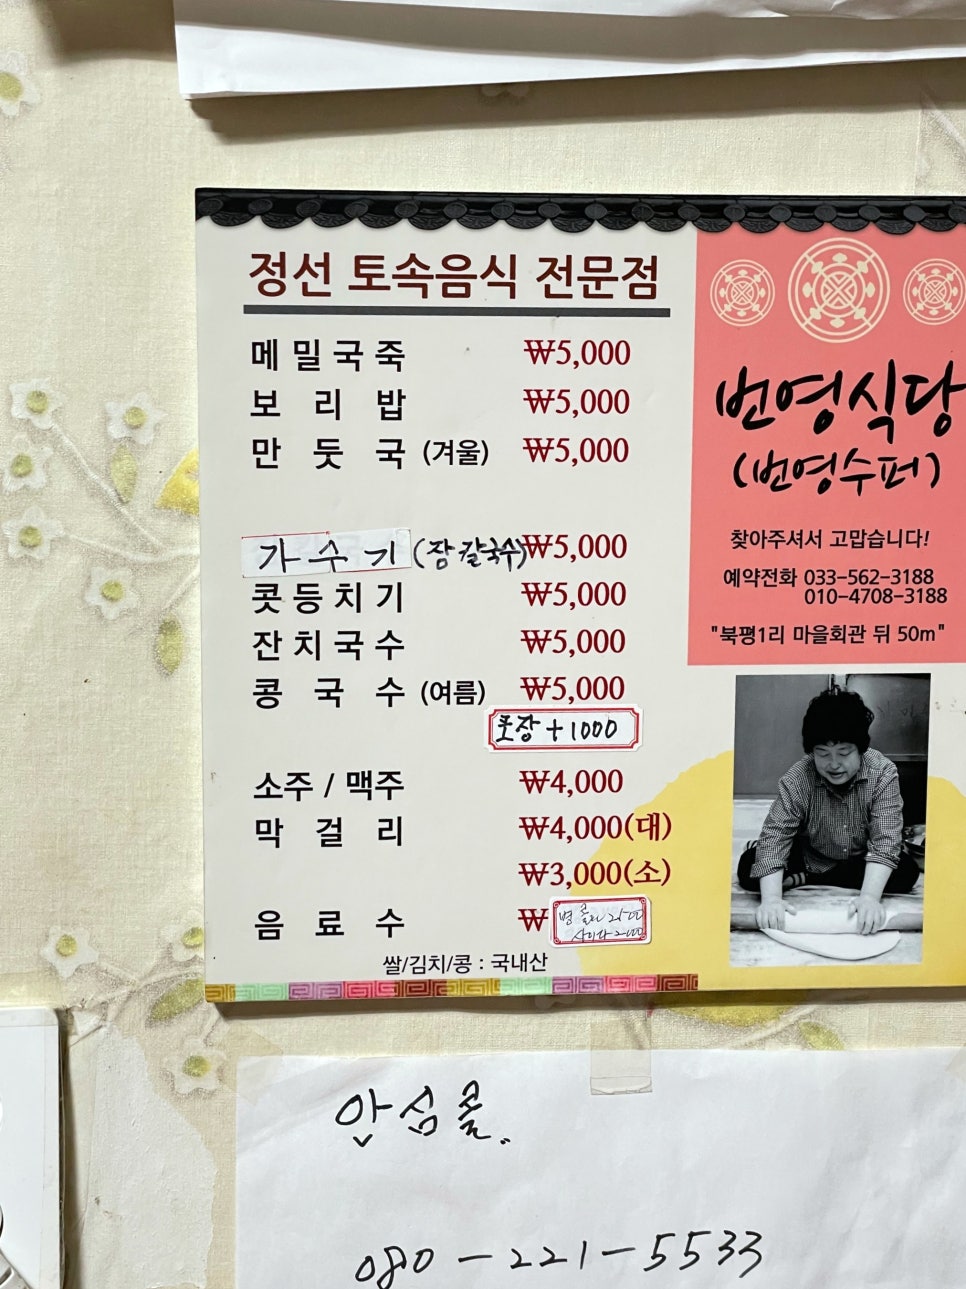 정선 토속음식 전문점
메밀국죽 ₩5,000
보리밥 ₩5,000
만둣국 (겨울) ₩5,000
가수기 (장칼국수) ₩5,000
콧등치기 ₩5,000
잔치국수 ₩5,000
콩국수 (여름) ₩5,000
포장 + 1000
소주 / 맥주 ₩4,000
막걸리 ₩4,000(대)
₩3,000(소)
음료수 ₩
병 콜라 2500
사이다 2000
쌀/김치/콩 : 국내산
번영식당
(번영수퍼)
찾아주셔서 고맙습니다!
예약전화 033-562-3188
010-4708-3188
"북평1리 마을회관 뒤 50m"
안심콜
080-221-5533